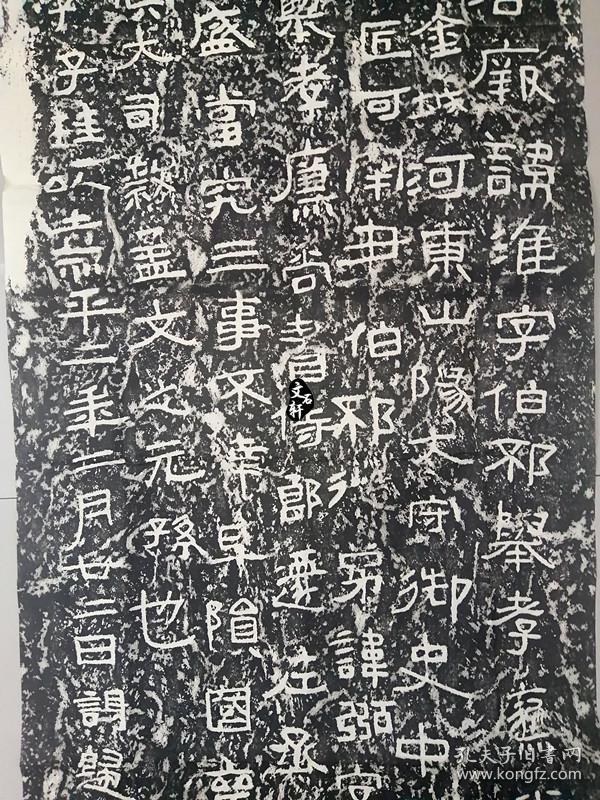 君厥諱淮字伯邳舉孝廉
金城河東山陽大守御史中
匠河南尹伯邳從弟諱弼字
舉孝廉尚書侍郎遷左丞
盛當究三事不幸早隕國喪
大司隸孟文之元孫也
字子珪以熹平二年二月廿二日謁歸
文石轩
孔夫子旧书网
www.kongfz.com